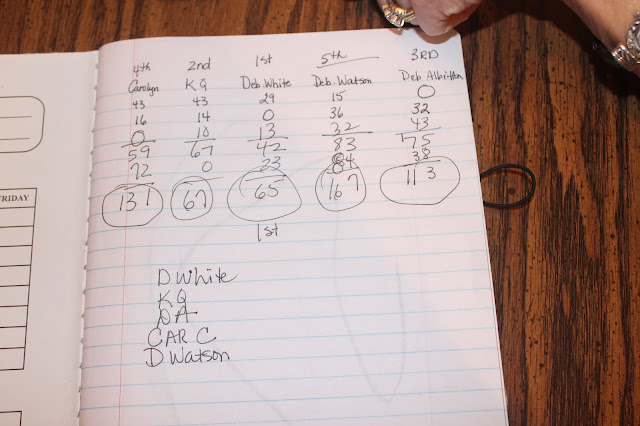 4th 2nd 1st 5th 3RD
Carolyn KQ Deb. White Deb. Watson Deb Albritton
43 43 29 15 0
16 14 0 36 32
0 10 13 32 43
59 67 42 83 75
72 0 23 84 38
131 67 65 167 113
1st
D White
KQ
DA
CAR C
D Watson
RIDAY